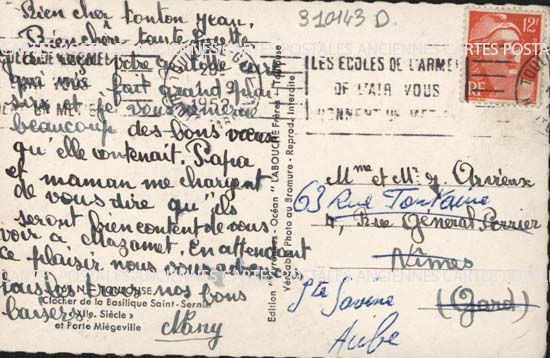 Bien cher tonton Jean,
Bien chère tante
votre gentille carte
qui m'a fait grand plai-
sir et je vous remercie
beaucoup des bons vœux
qu'elle contenait. Papa
et maman me chargent
de vous dire qu'ils
seront bien content de vous
voir à Mazamet. En attendant
ce plaisir nous vous
tous les trois nos bons
baisers.
Many
TOULOUSE
Clocher de la Basilique Saint-Sernin
« XIIe Siècle »
et Porte Miégeville
Edition "Pyrénées - Océan" LABOUCHE Frères - Toulouse
Véritable Photo au Bromure - Reprod. Interdite
310143 D.
LES ECOLES DE L'ARMEE
DE L'AIR VOUS
DONNENT UN METIER
12F
RF
Mme et Mr. Orvieux
63 Rue Fontaine
4, Rue Général Perrier
Nîmes
(Gard)
Ste Savine
Aube
CARTES POSTALES ANCIENNES CARTES POSTALES